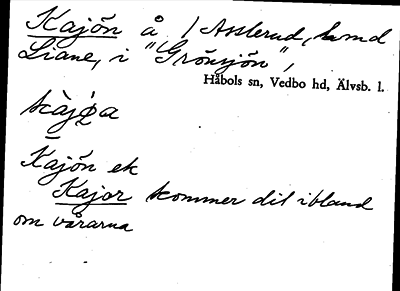 Kajön å / Asslerud, hmd
Liane, i "Grönsjön",
Håbols sn, Vedbo hd, Älvsb. l.
kàjøa
Kajön ek
Kajor kommer dit ibland
om vårarna